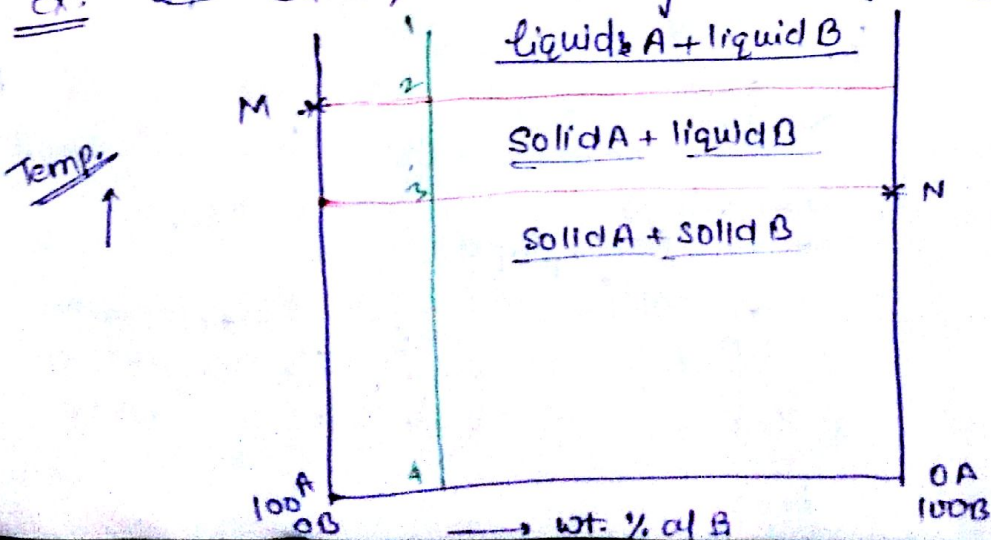 Ex:
1
liquid A + liquid B
2
M
Solid A + liquid B
Temp.
3
N
Solid A + Solid B
4
100 A
0B
wt. % of B
0A
100B